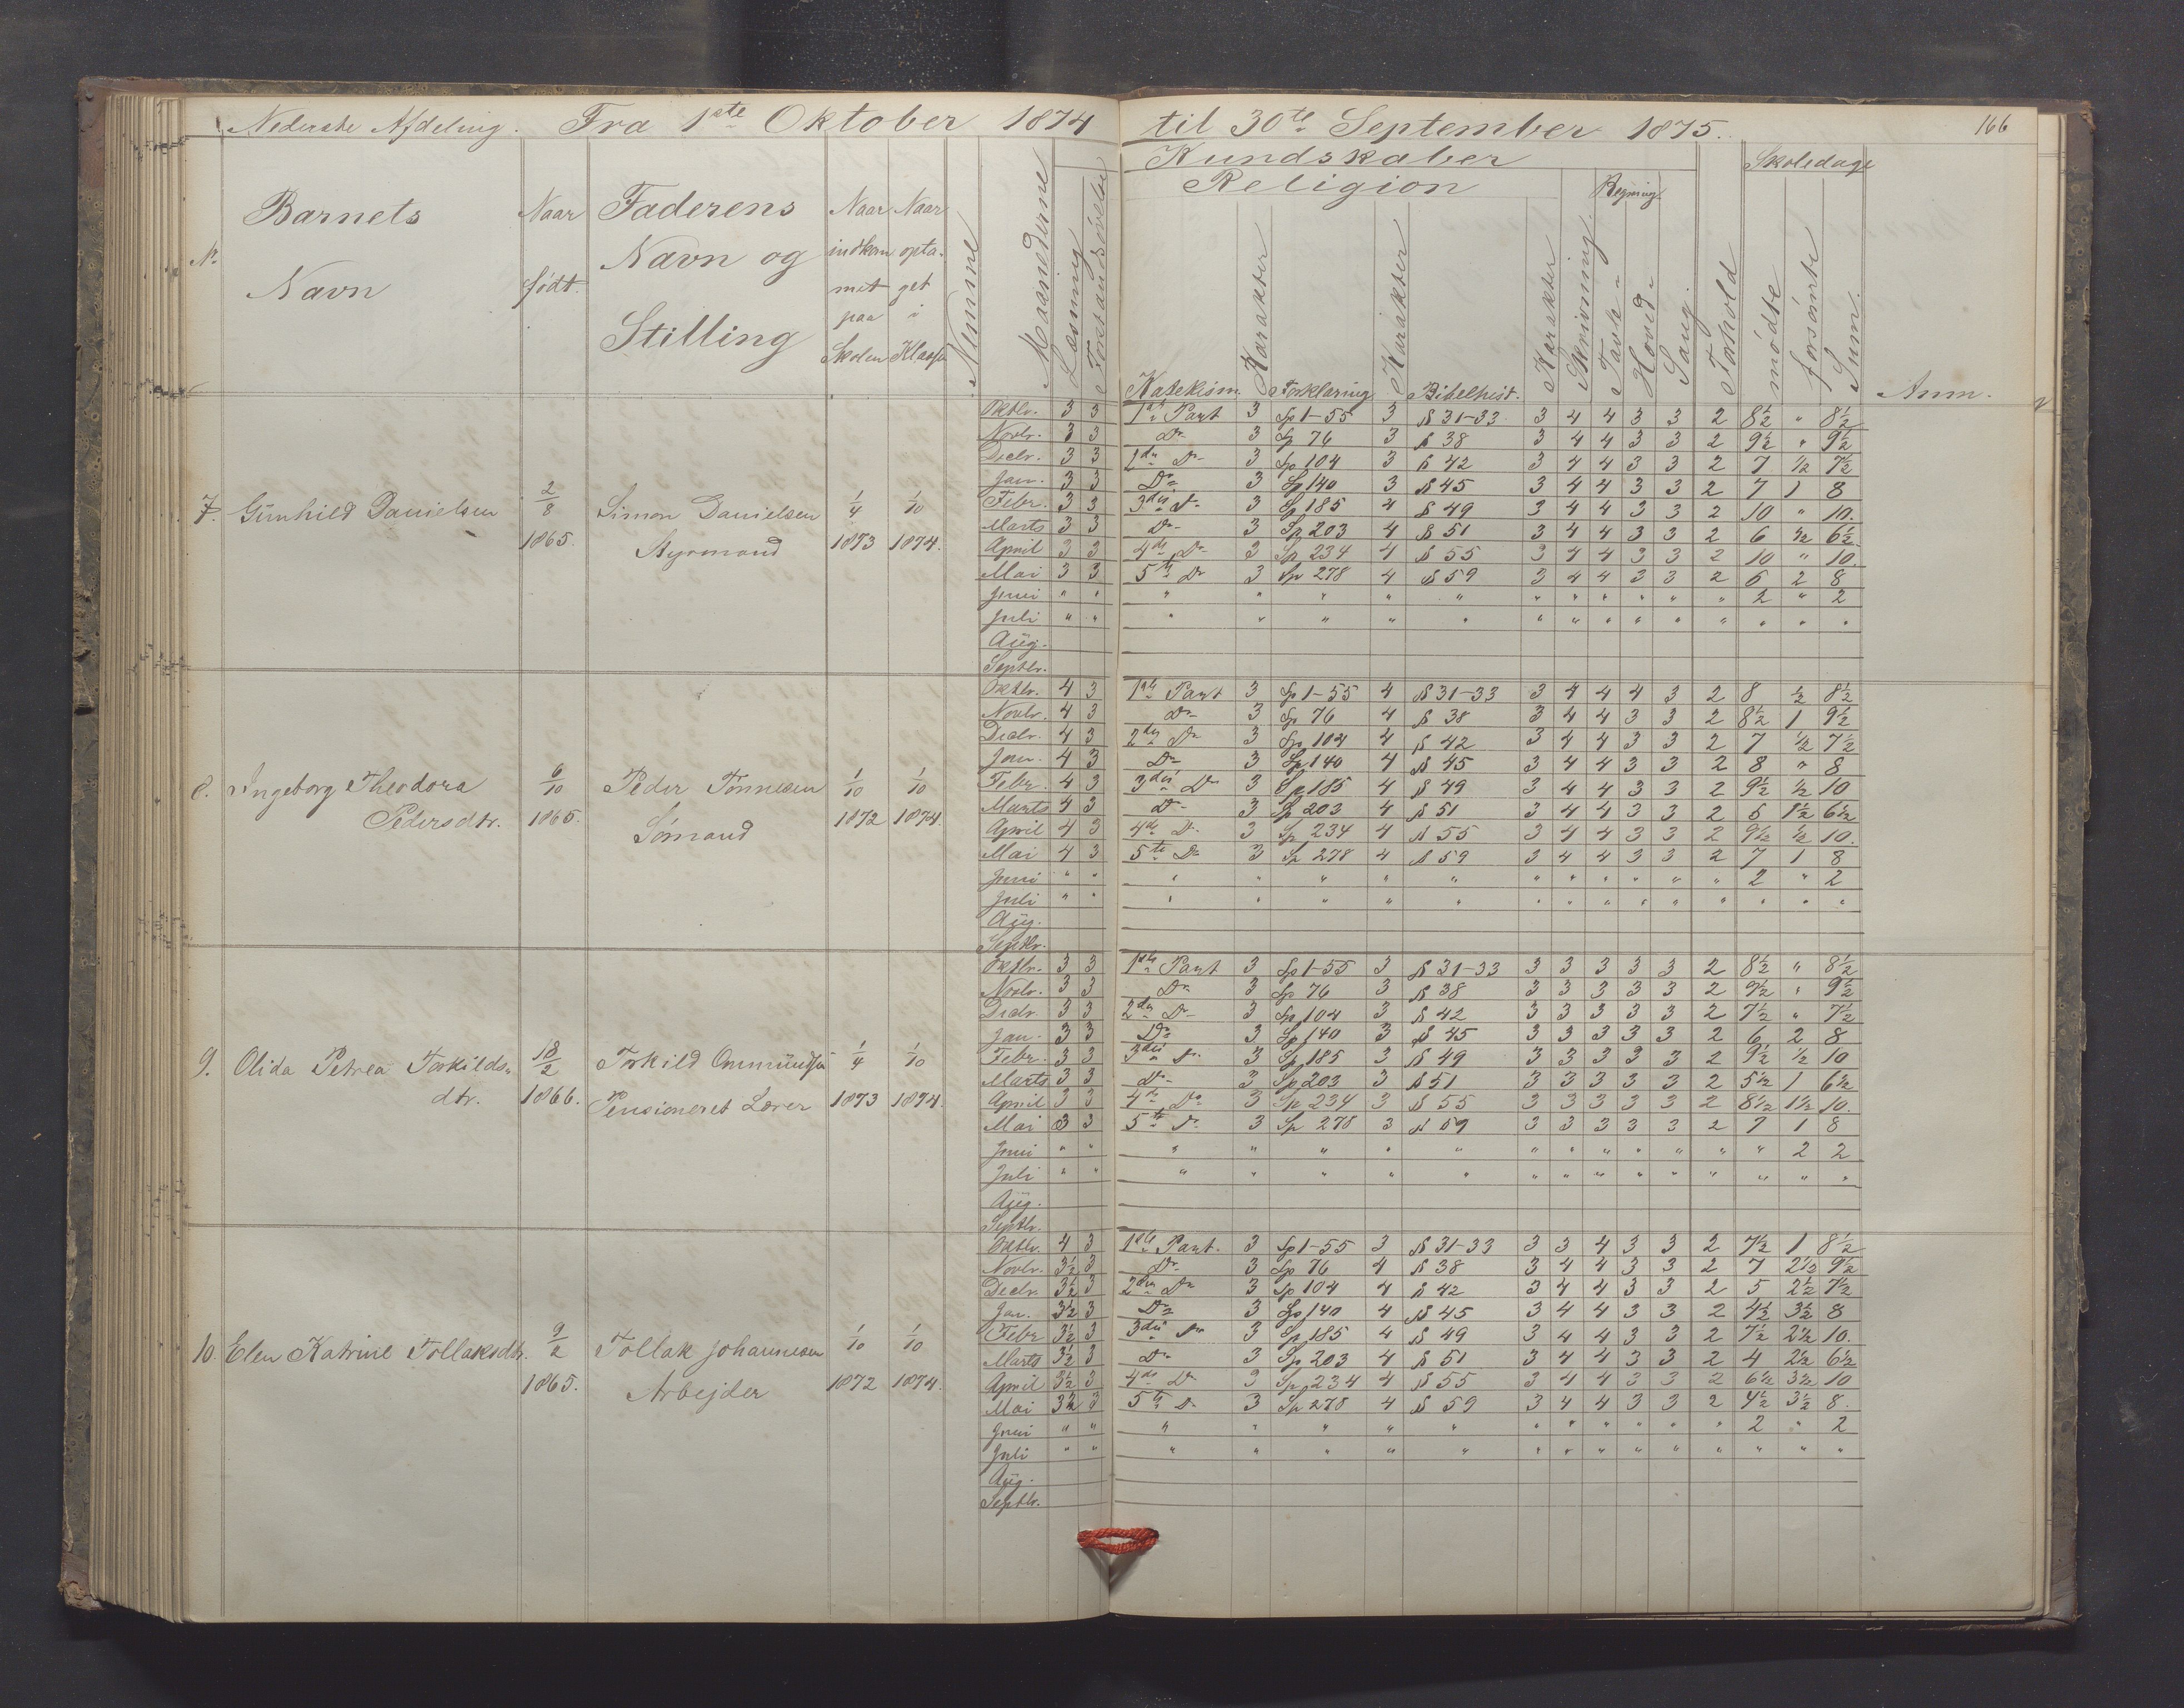 Nederste Afdeling. Fra 1ste Oktober 1874 til 30te September 1875. 166
No Barnets Navn
Naar født.
Faderens Navn og Stilling
Naar indkommet paa Skolen
Naar optaget i Klassen
Numne
Maanederne
Læsning
Forstandsøvelse
Kundskaber
Religion
Katekism. Karakter Forklaring Karakter Bibelhist. Karakter
Skrivning
Regning
Tavle- Hoved-
Sang.
Forhold
Skoledage
mødte forsømte Sum.
Anm.
7. Gunhild Danielsen 2/8 1865. Simon Danielsen Styrmand 1/4 1873 1/10 1874.
Oktbr. 3 3 1ste Part 3 Sp 1-55 3 § 31-33 3 4 4 3 3 2 8½ " 8½
Novbr. 3 3 Do 3 Sp 76 3 § 38 3 4 4 3 3 2 9½ " 9½
Decbr. 3 3 2den Do 3 Sp 104 3 § 42 3 4 4 3 3 2 7 ½ 7½
Jan. 3 3 Do 3 Sp 140 3 § 45 3 4 4 3 3 2 7 1 8
Febr. 3 3 3die Do 3 Sp 185 4 § 49 3 4 4 3 3 2 10 " 10.
Marts 3 3 Do 3 Sp 203 4 § 51 3 4 4 3 3 2 6 ½ 6½
April 3 3 4de Do 3 Sp 234 4 § 55 3 4 4 3 3 2 10 " 10.
Mai 3 3 5te Do 3 Sp 278 4 § 59 3 4 4 3 3 2 6 2 8
Juni " " " " " " " " " " " " " 2 " 2
Juli " " " " " " " " " " " " " " " "
Aug.
Septbr.
8. Ingeborg Theodora Pedersdtr. 6/10 1865. Peder Tønnesen Sømand 1/10 1872 1/10 1874.
Oktbr. 4 3 1ste Part 3 Sp 1-55 4 § 31-33 3 4 4 4 3 2 8 ½ 8½
Novbr. 4 3 Do 3 Sp 76 4 § 38 3 4 4 3 3 2 8½ 1 9½
Decbr. 4 3 2den Do 3 Sp 104 4 § 42 3 4 4 3 3 2 7 ½ 7½
Jan. 4 3 Do 3 Sp 140 4 § 45 3 4 4 3 3 2 8 " 8
Febr. 4 3 3die Do 3 Sp 185 4 § 49 3 4 4 3 3 2 9½ ½ 10
Marts 4 3 Do 3 Sp 203 4 § 51 3 4 4 3 3 2 5 1½ 6½
April 4 3 4de Do 3 Sp 234 4 § 55 3 4 4 3 3 2 9½ ½ 10.
Mai 4 3 5te Do 3 Sp 278 4 § 59 3 4 4 3 3 2 7 1 8
Juni " " " " " " " " " " " " " 2 " 2
Juli " " " " " " " " " " " " " " " "
Aug.
Septbr.
9. Olida Petrea Torkildsdtr. 18/2 1866. Torkild Ommundsen Pensioneret Lærer 1/4 1873 1/10 1874.
Oktbr. 3 3 1ste Part 3 Sp 1-55 3 § 31-33 3 3 3 3 3 2 8½ " 8½
Novbr. 3 3 Do 3 Sp 76 3 § 38 3 3 3 3 3 2 9½ " 9½
Decbr. 3 3 2den Do 3 Sp 104 3 § 42 3 3 3 3 3 2 7½ " 7½
Jan. 3 3 Do 3 Sp 140 3 § 45 3 3 3 3 3 2 6 2 8
Febr. 3 3 3die Do 3 Sp 185 3 § 49 3 3 3 3 3 2 9½ ½ 10
Marts 3 3 Do 3 Sp 203 3 § 51 3 3 3 3 3 2 5½ 1 6½
April 3 3 4de Do 3 Sp 234 3 § 55 3 3 3 3 3 2 8½ 1½ 10.
Mai 3 3 5te Do 3 Sp 278 3 § 59 3 3 3 3 3 2 7 1 8
Juni " " " " " " " " " " " " " " 2 2
Juli " " " " " " " " " " " " " " " "
Aug.
Septbr.
10. Elen Katrine Tollaksdtr. 9/2 1865. Tollak Johannesen Arbejder 1/10 1872 1/10 1874.
Oktbr. 4 3 1ste Part. 3 Sp 1-55 3 § 31-33 3 3 4 3 3 2 7½ 1 8½
Novbr. 3½ 3 Do 3 Sp 76 4 § 38 3 4 4 3 3 2 7 2½ 9½
Decbr. 3½ 3 2den Do 3 Sp 104 4 § 42 3 4 4 3 3 2 5 2½ 7½
Jan. 3½ 3 Do 3 Sp 140 4 § 45 3 4 4 3 3 2 4½ 3½ 8
Febr 3½ 3 3die Do 3 Sp 185 4 § 49 3 4 4 3 3 2 7½ 2½ 10.
Marts 3½ 3 Do 3 Sp 203 4 § 51 3 4 4 3 3 2 4 2½ 6½
April 3½ 3 4de Do 3 Sp 234 4 § 55 3 4 4 3 3 2 6½ 3½ 10
Mai 3½ 3 5te Do 3 Sp 278 4 § 59 3 4 4 3 3 2 4½ 3½ 8.
Juni " " " " " " " " " " " " " 2 " 2
Juli " " " " " " " " " " " " " " " "
Aug.
Septbr.